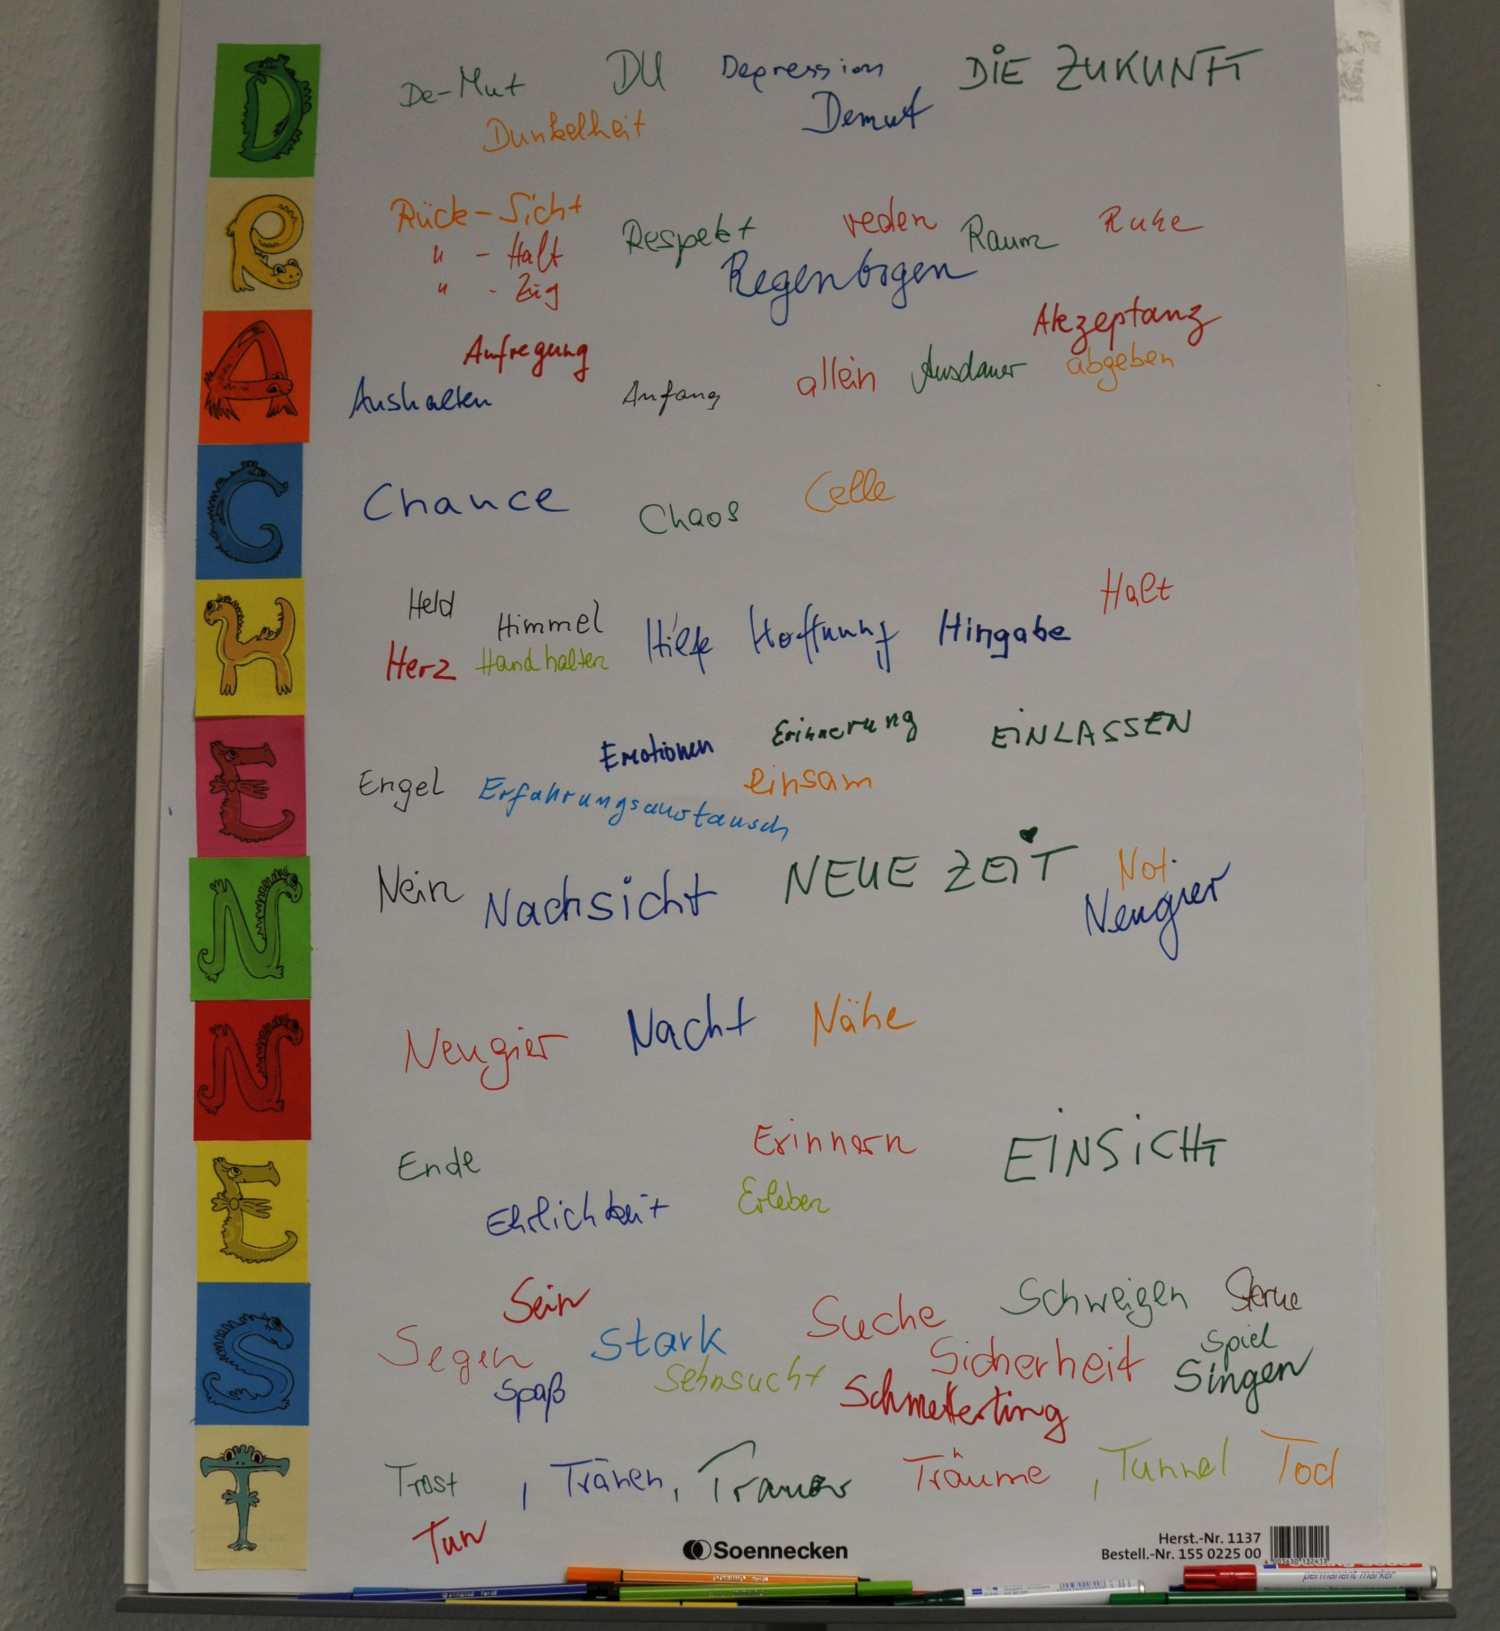 D
De-Mut DU Depression DIE ZUKUNFT
Dunkelheit Demut
R
Rück-Sicht Respekt reden Raum Ruhe
" - Halt Regenbogen
" - Zug
A
Aufregung Akzeptanz
Aushalten Anfang allein Ausdauer abgeben
C
Chance Chaos Celle
H
Held Himmel Hilfe Hoffnung Hingabe Halt
Herz Hand halten
E
Emotionen Erinnerung EINLASSEN
Engel Erfahrungsaustausch einsam
N
Nein Nachsicht NEUE ZEIT Not
Neugier
N
Neugier Nacht Nähe
E
Ende Erinnern EINSICHT
Ehrlichkeit Erleben
S
Sein Suche Schweigen Sterne
Segen Stark Sicherheit Spiel
Spaß Sehnsucht Schmetterling Singen
T
Trost , Tränen, Trauer Träume , Tunnel Tod
Tun
Soennecken
Herst.-Nr. 1137
Bestell.-Nr. 155 0225 00
permanent marker